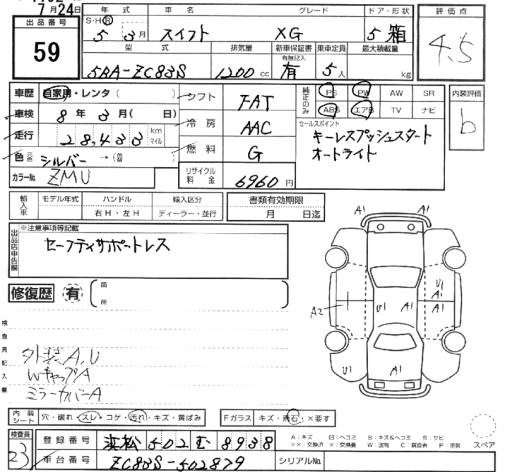 7月24日
出品番号
59
年式 車名 グレード ドア・形状
S・H・R 5年3月 スイフト XG 5 箱
型式 排気量 新車保証書 乗車定員 最大積載量
有無記入
5BA-ZC83S 1200cc 有 5人 kg
評価点
4.5
内装評価
b
車歴 自家用・レンタ( )
車検 8年3月( 日)
走行 28,433 km マイル
色 シルバー→( )
カラーNo. ZMU
シフト FAT
冷房 AAC
燃料 G
リサイクル料金 6960円
純正のみ
PS PW AW SR
ABS エアB TV ナビ
セールスポイント
キーレスプッシュスタート
オートライト
輸入車
モデル年式 ハンドル 輸入区分
右H・左H ディーラー・並行
書類有効期限
月 日迄
出品店申告欄
※注意事項等記載
セーフティサポートレス
修復歴 有
箇所
検査員記入欄
外装A,U
WキャップA
ミラーカバーA
A1 A1
U1
A1 A1
A2 U1 A1 U1
A1
内装シート 穴・破れ・スレ・コゲ・汚れ・キズ・黄ばみ
Fガラス キズ・飛石・×要す
スペア
検査員
23
登録番号 浜松502む8938
車台番号 ZC83S-502879
シリアルNo.
A:キズ U:ヘコミ B:キズ&ヘコミ S:サビ
××:交換済 ×:交換要 W:波有 C:腐食有 P:塗装